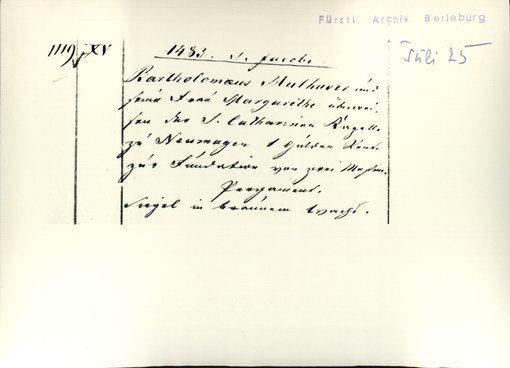 Fürstl. Archiv Berleburg
1119 XV
1483. S. Jacobi.
Juli 25
Bartholomäus Mulhuser und
seine Frau Margarethe überwei-
sen der S. Catharinen Kapelle
zu Neumagen 1 Gulden Rente
zur Fundation von zwei Messen.
Pergament.
Siegel in braunem Wachs.